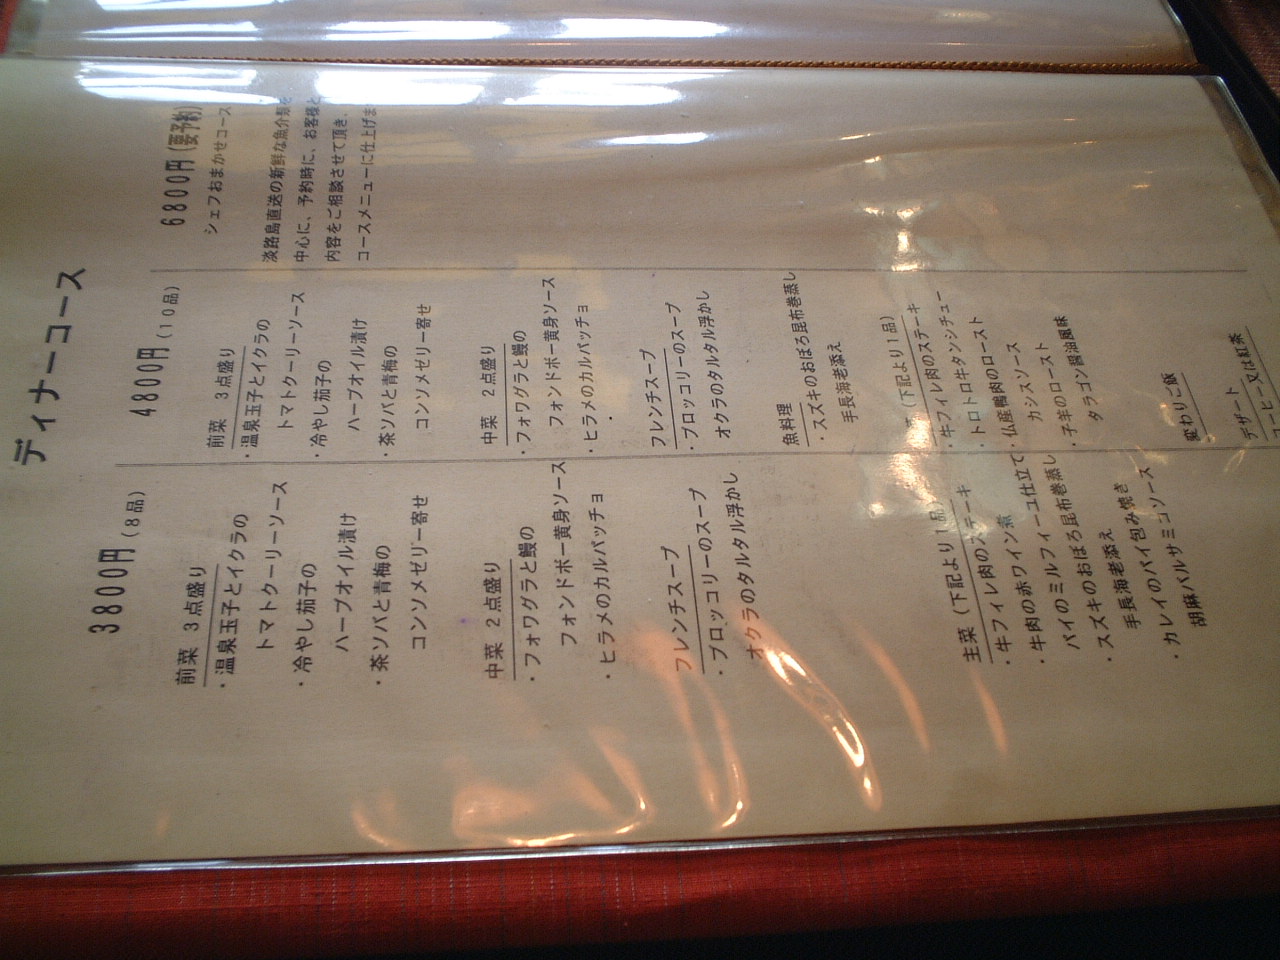 ディナーコース
3800円(8品)
前菜 3点盛り
・温泉玉子とイクラの
トマトクーリーソース
・冷やし茄子の
ハーブオイル漬け
・茶ソバと青梅の
コンソメゼリー寄せ
中菜 2点盛り
・フォワグラと鰻の
フォンドボー黄身ソース
・ヒラメのカルパッチョ
フレンチスープ
・ブロッコリーのスープ
オクラのタルタル浮かし
主菜(下記より1品)
・牛フィレ肉のステーキ
・牛肉の赤ワイン煮
パイのミルフィーユ仕立て
・スズキのおぼろ昆布巻蒸し
手長海老添え
・カレイのパイ包み焼き
胡麻バルサミコソース
4800円(10品)
前菜 3点盛り
・温泉玉子とイクラの
トマトクーリーソース
・冷やし茄子の
ハーブオイル漬け
・茶ソバと青梅の
コンソメゼリー寄せ
中菜 2点盛り
・フォワグラと鰻の
フォンドボー黄身ソース
・ヒラメのカルパッチョ
・
フレンチスープ
・ブロッコリーのスープ
オクラのタルタル浮かし
魚料理
・スズキのおぼろ昆布巻蒸し
手長海老添え
主菜(下記より1品)
・牛フィレ肉のステーキ
・トロトロ牛タンシチュー
・仏産鴨肉のロースト
カシスソース
・子羊のロースト
タラゴン醤油風味
変わりご飯
デザート
コーヒー又は紅茶
6800円(要予約)
シェフおまかせコース
淡路島直送の新鮮な魚介類を
中心に、予約時に、お客様と
内容をご相談させて頂き、
コースメニューに仕上げま